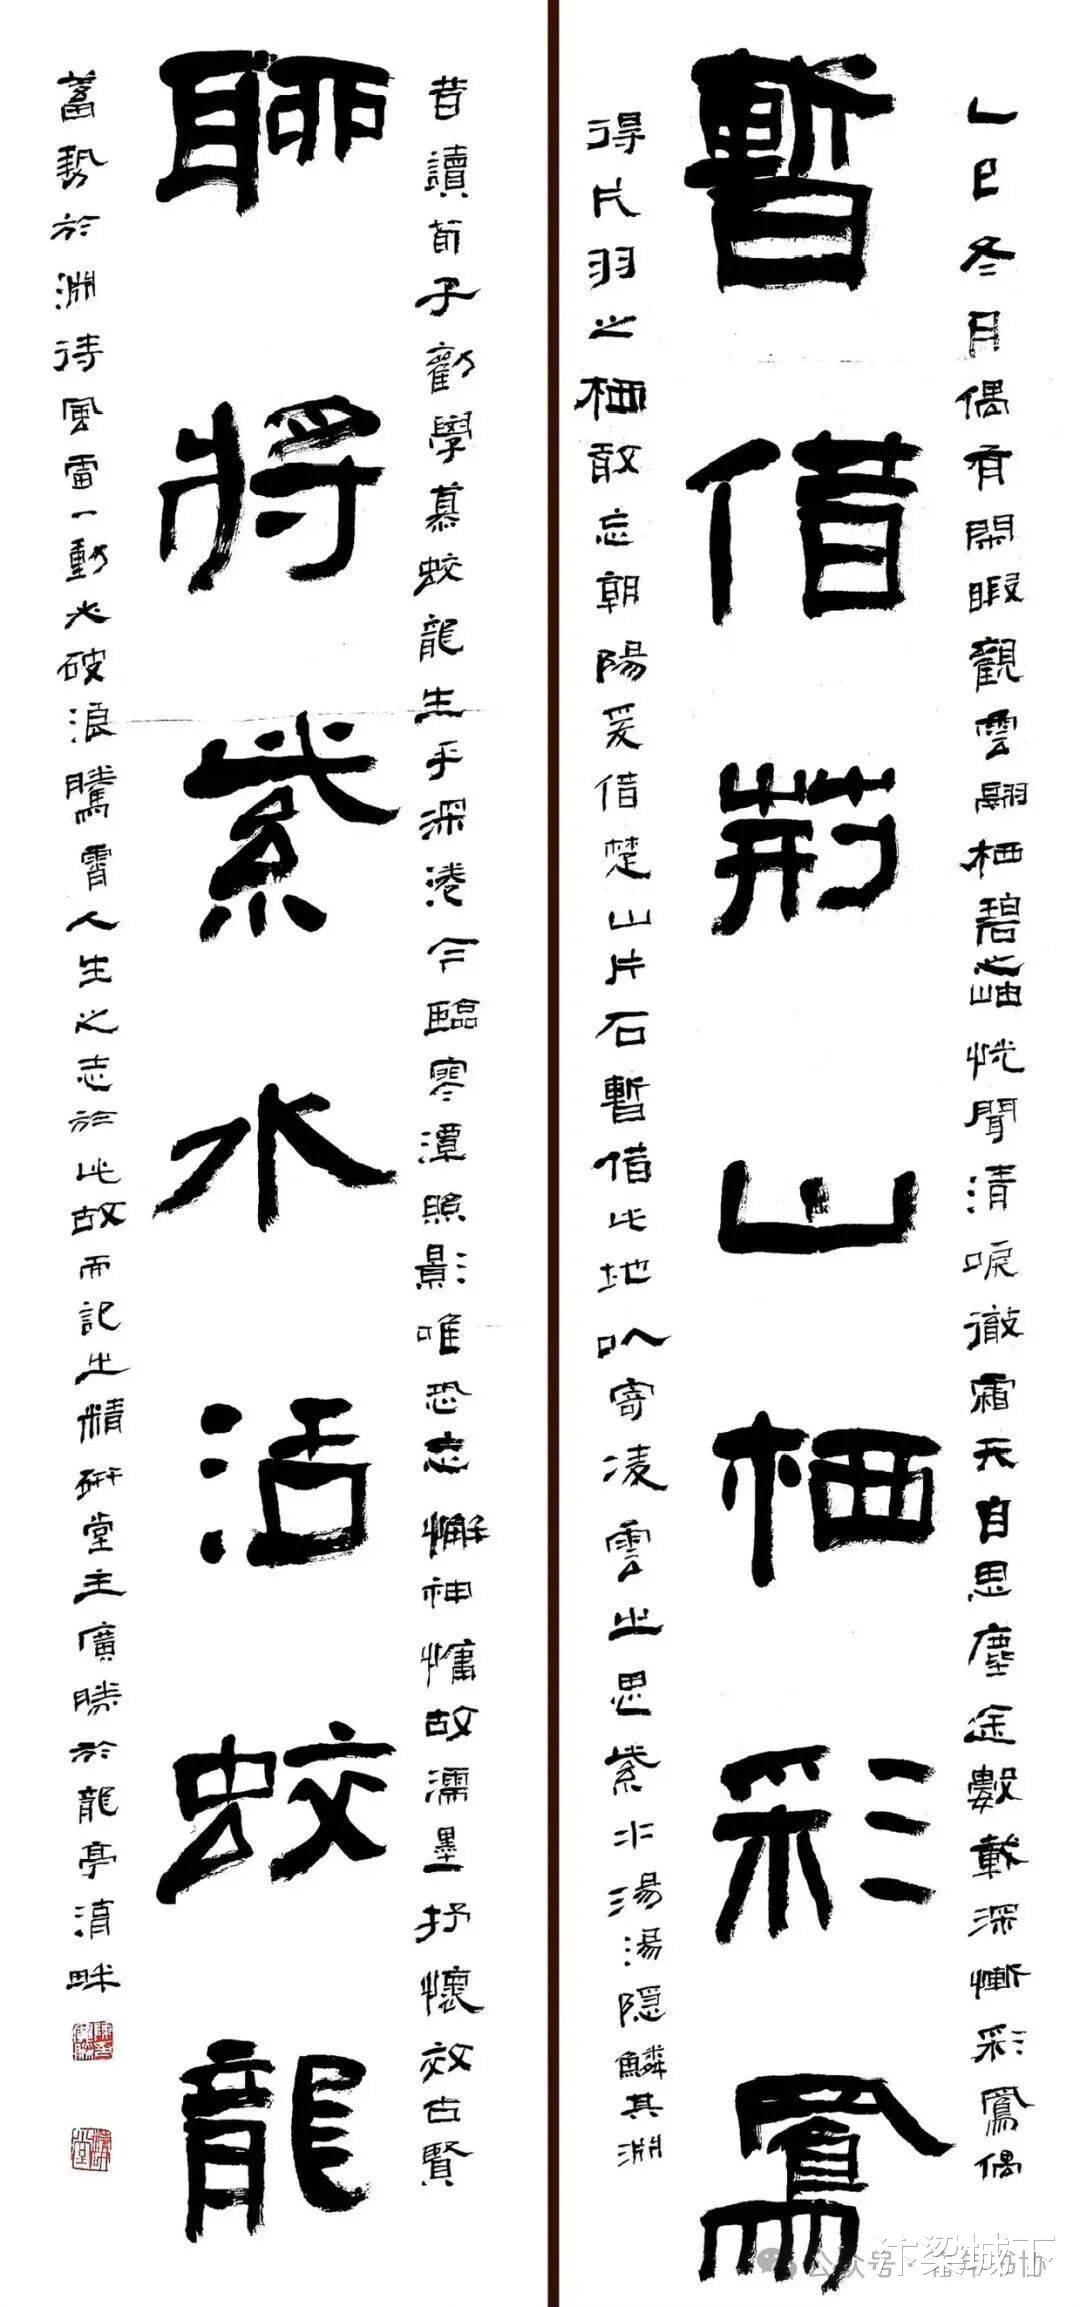 乙巳冬月偶有閑暇觀雲翮栖碧之岫恍聞清唳徹霜天自思塵途數載深慚彩鳳偶
暫借荊山栖彩鳳
得片羽之栖敢忘朝陽爰借楚山片石暫借此地以寄凌雲之思紫水湯湯隱鱗其淵
昔讀荀子勸學慕蛟龍生乎深淺今臨寒潭照影唯恐志懈神慵故濡墨抒懷效古賢
聊將紫水活蛟龍
蓄勢於淵待風雷一動必破浪騰霄人生之志於此故而記之精研堂主廣勝於龍亭清畔
公众号
汴梁城下